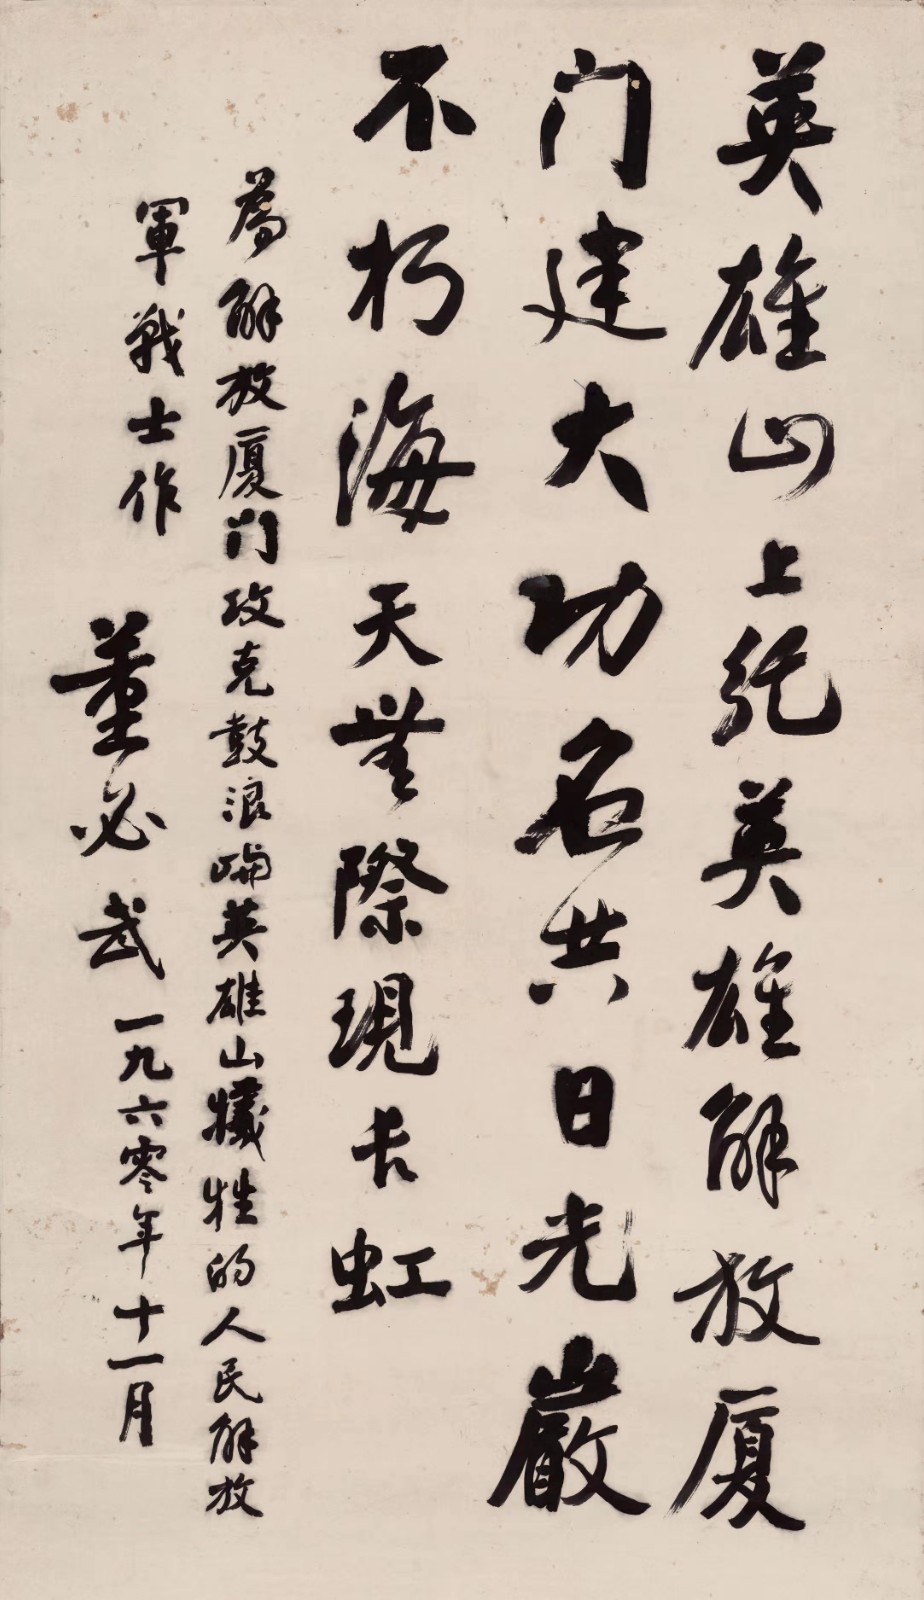 英雄山上纪英雄解放厦
门建大功名共日光巖
不朽海天無際現长虹
為解放厦门攻克鼓浪嶼英雄山犧牲的人民解放
軍戰士作
董必武一九六零年十一月